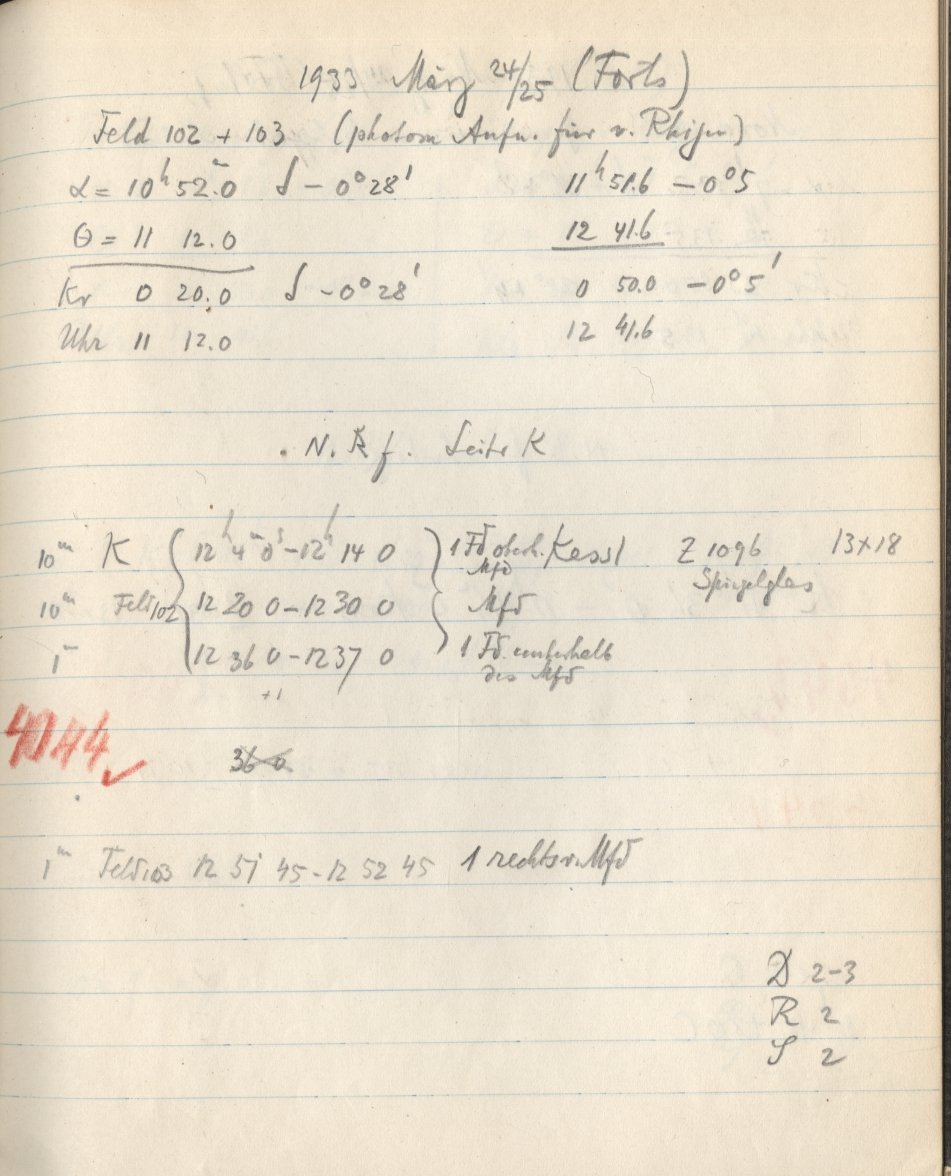 1933 März 24/25 (Forts)
Feld 102 + 103 (photom Aufn. für v. Rhijn)
α = 10h 52m.0 δ - 0° 28' 11h 51.6 - 0° 5
θ = 11 12.0 12 41.6
Kr 0 20.0 δ - 0° 28' 0 50.0 - 0° 5'
Uhr 11 12.0 12 41.6
N. R f. Seite K
10m K 12h 4m 0s - 12h 14 0 1 Fd oberh. Mfd Kassl Z 1096 13×18
Spiegelglas
10m Feld 102 12 20 0 - 12 30 0 Mfd
1m 12 36 0 - 12 37 0 1 Fd. unterhalb
des Mfd
+1
4044 ✓
36 0
1m Feld 103 12 51 45 - 12 52 45 1 rechts v. Mfd
D 2-3
R 2
S 2